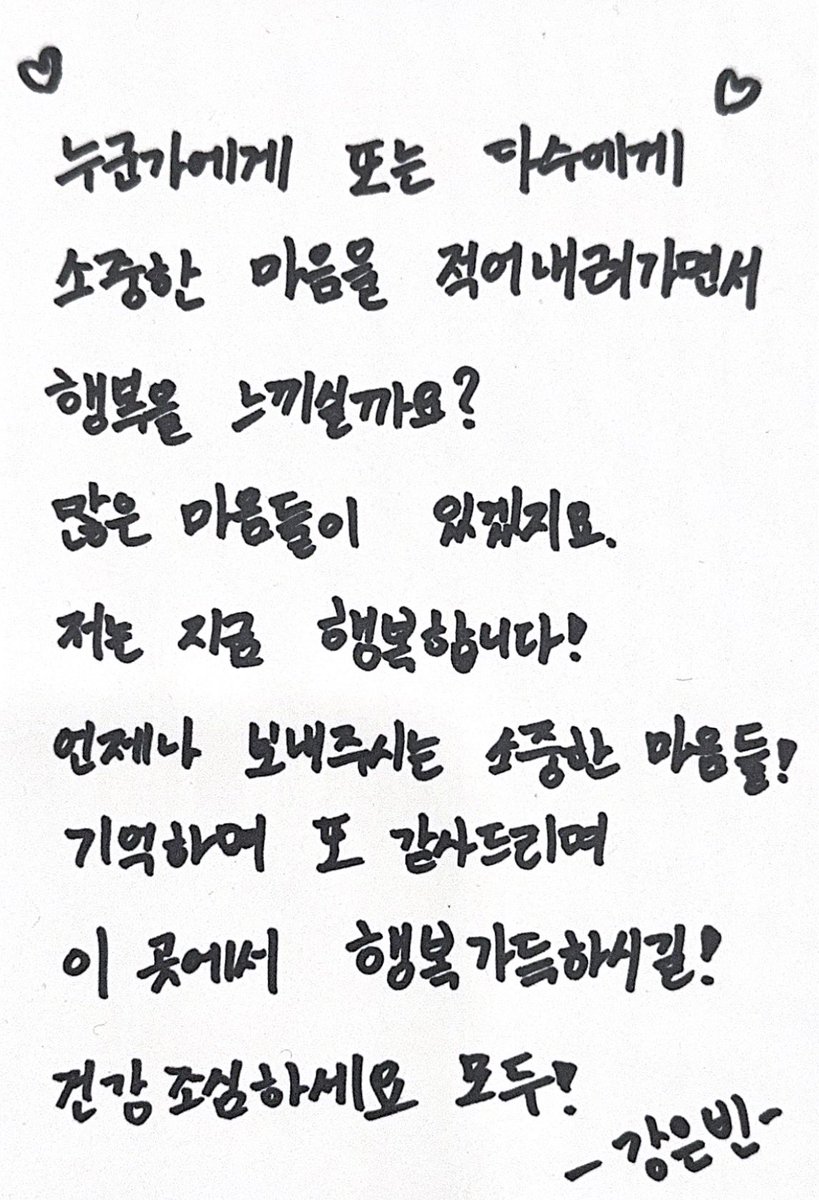 누군가에게 또는 다수에게
소중한 마음을 적어내려가면서
행복을 느끼실까요?
많은 마음들이 있겠지요.
저는 지금 행복합니다!
언제나 보내주시는 소중한 마음들!
기억하며 또 감사드리며
이 곳에서 행복가득하시길!
건강조심하세요 모두!
- 강은빈 -